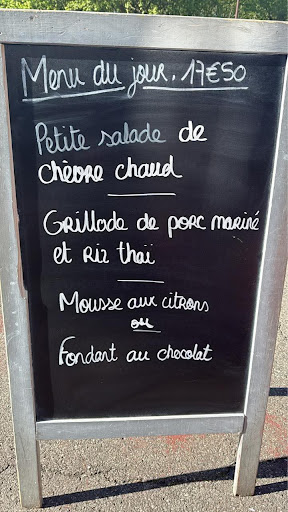 Menu du jour. 17€50
Petite salade de
chèvre chaud
Grillade de porc mariné
et Riz thaï
Mousse aux citrons
ou
Fondant au chocolat